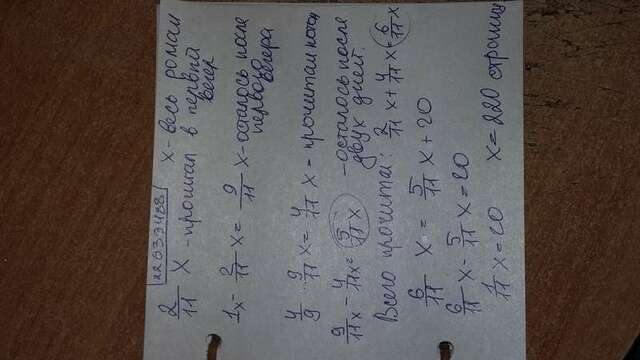 22633488
x - весь роман
2/11 x - прочитал в первый вечер
1x - 2/11 x = 9/11 x - осталось после первого вечера
4/9 · 9/11 x = 4/11 x - прочитал
9/11 x - 4/11 x = 5/11 x - осталось после двух дней.
Всего прочитал: 2/11 x + 4/11 x = 6/11 x
6/11 x = 5/11 x + 20
6/11 x - 5/11 x = 20
1/11 x = 20 x = 220 страниц